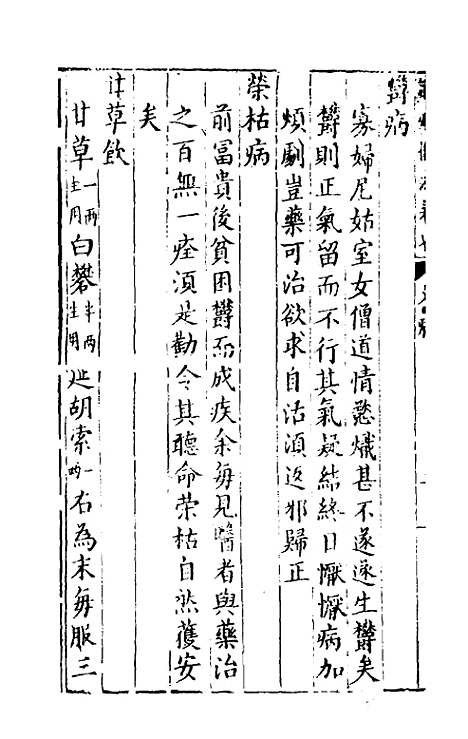 欝病
寡婦尼姑室女僧道情慾熾甚不遂遂生欝矣
欝則正氣留而不行其氣凝結終日懨懨病加
煩劇豈藥可治欲求自活須返邪歸正
榮枯病
前冨貴後貧困欝而成疾余每見醫者與藥治
之百無一痊須是勸令其聽命荣枯自然獲安
矣
甘草飲
甘草一兩生用白礬半兩生用延胡索一兩右為末每服三